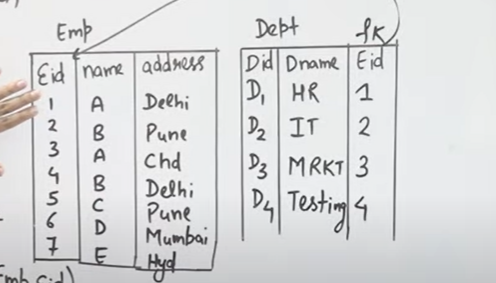 Emp
Eid name address
1 A Delhi
2 B Pune
3 A Chd
4 B Delhi
5 C Pune
6 D Mumbai
7 E Hyd
Dept fK
Did Dname Eid
D1 HR 1
D2 IT 2
D3 MRKT 3
D4 Testing 4